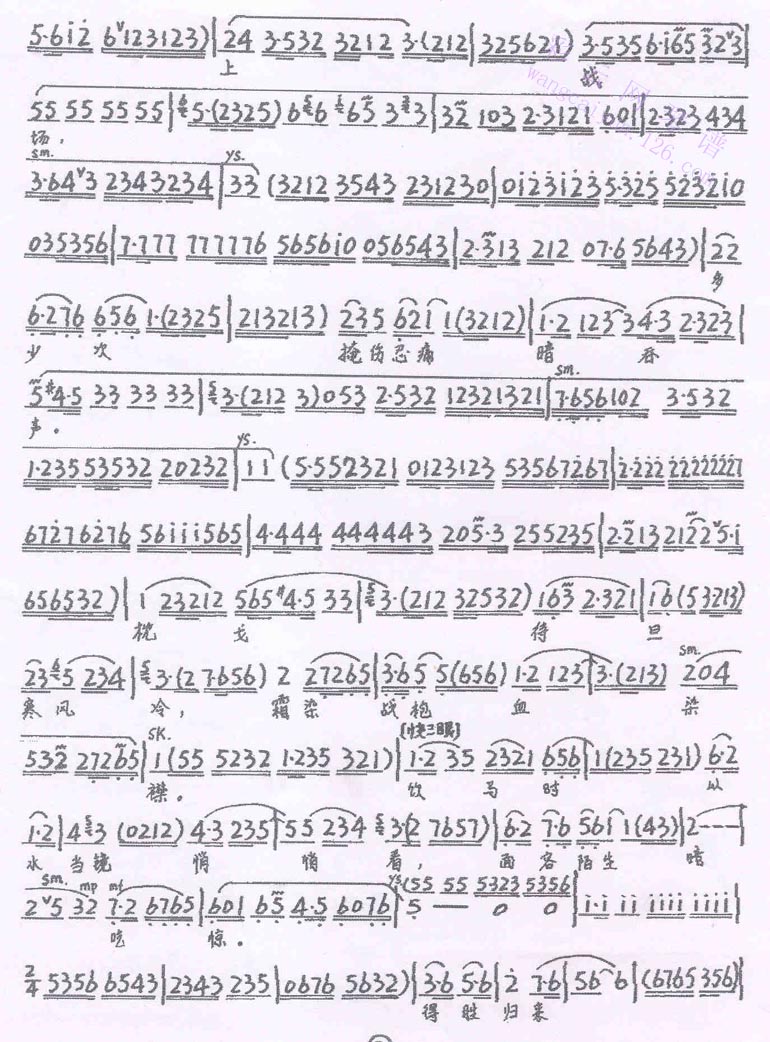 5·6i2 6ⱽ123123)|24 3·532 3212 3·(212|325621)3·535 6·i65 32ⱽ3|
上 战
55 55 55 55|5·(2325) 6 6 65 3 3|32 103 2·3121 601|2·323 434
场，
sm. ys.
3·64ⱽ3 2343234|33 (3212 3543 231230|0123123 5·325 523210
035356|7·777 777776 5656i0 056543|2·313 212 07·6 5643)|22
多
6·276 656 1·(2325|213213) 235 6211(3212)|1·2 123 34·3 2·323|
少 次 掩伤忍痛 暗 吞
sm.
5#4·5 33 33 33|3·(212 3)053 2·532 12321321|7·656102 3·532
声。
ys.
1·23553532 20232|11 (5·552321 0123123 53567267|2·222 22222227
67276276 56iii565|4·444 444443 205·3 255235|2·213 2122ⱽ5·i
656532)|1 23212 565#4·5 33|3·(212 32532) 163 2·321|16(53213)
枕 戈 待 旦
sm.
235 234|3·(27·656) 2 27265|3·65 5(656) 1·2 123|3·(213) 204
寒风 冷， 霜染 战袍 血 染
SK. [快三眼]
532 27265|1(55 5232 1·235 321)|1·2 35 2321 656|1(235 231) 6·2
襟。 饮 马 时 以
1·2|43 (0212) 4·3 235|55 234 3(2 7657)|6·2 7·6 561 1(43)|2---|
水当镜 悄 悄 看， 面容陌生 暗
sm. mp mf ys.
2ⱽ5 32 7·2 6765|601 65 4·5 6076|5 — 0 0|i·i ii iiii iiii|
(55 55 5323 5356
吃 惊。
2/4 5356 6543|2343 235|0676 5632)|3·6 5·6|2 7·6|56 6|(6765 356)|
得胜归来